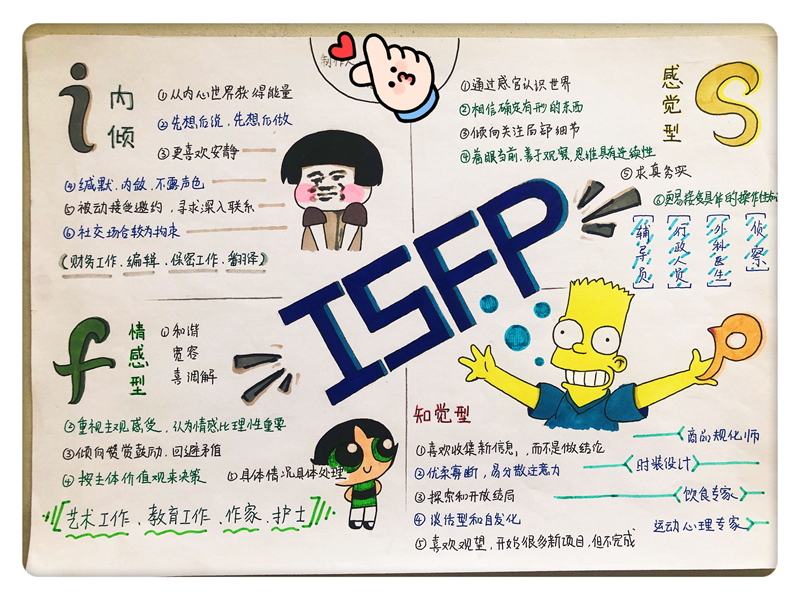 i 内倾
①从内心世界获得能量
②先想后说，先想后做
③更喜欢安静
④缄默、内敛、不露声色
⑤被动接受邀约，寻求深入联系
⑥社交场合较为拘束
（财务工作、编辑、保密工作、翻译）
制作人
S 感觉型
①通过感官认识世界
②相信确定有形的东西
③倾向关注局部细节
④着眼当前，善于观察，思维具有连续性
⑤求真务实
辅导员
行政人员
外科医生
侦察
ISFP
f 情感型
①和谐
宽容
喜调解
②重视主观感受，认为情感比理性重要
③倾向赞赏鼓励，回避矛盾
④按主体价值观来决策
⑤具体情况具体处理
[艺术工作、教育工作、作家、护士]
知觉型
①喜欢收集新信息，而不是做结论
②优柔寡断，易分散注意力
③探索和开放结局
④灵活型和自发化
⑤喜欢观望，开始很多新项目，但不完成
商品规化师
时装设计
饮食专家
运动心理专家